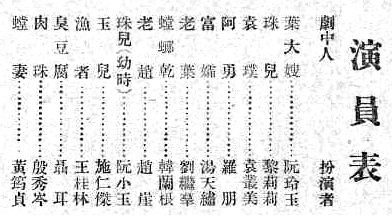 演員表
劇中人 扮演者
葉大嫂……阮玲玉
珠兒……黎莉莉
袁璞……袁叢美
阿勇……羅朋
富孀……湯天繡
老葉……劉繼羣
螳螂乾……韓蘭根
老趙……趙崖
珠兒(幼時)……阮小玉
玉兒……施仁傑
漁者……王桂林
臭豆腐……聶耳
肉珠……殷秀岑
螳妻……黃筠貞